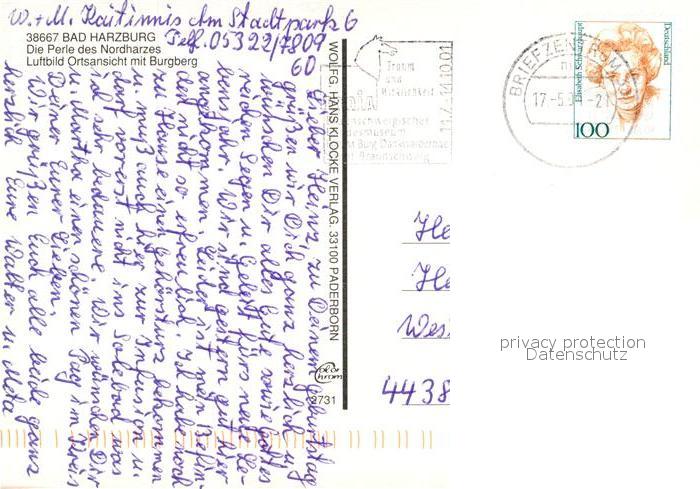 W.+M. Kaitinnis Am Stadtpark 6
Telf. 05322/7809
60
38667 BAD HARZBURG
Die Perle des Nordharzes
Luftbild Ortsansicht mit Burgberg
Lieber Heinz, zu Deinem Geburtstag
grüßen wir Dich ganz herzlich u.
wünschen Dir alles Gute sowie Gottes
reichen Segen u. Geleit fürs neue Le-
bensjahr. Wir sind gestern gut hier
angekommen. Leider ist mein Befin-
den nicht so erfreulich. Ich habe noch
zu Hause einen Hörsturz bekommen
u. muß auch hier zur Infusion u.
darf vorerst nicht ins Solebad was
ich sehr bedauere. Wir wünschen Dir
u. Martha einen schönen Tag im Kreis
Deiner Lieben.
Wir grüßen Euch alle beide ganz
herzlich Eure Walter u. Meta
WOLFG. HANS KLOCKE VERLAG. 33100 PADERBORN
color
chrom
2731
Traum
und
Wirklichkeit
11.4.-14.10.01
Burg Dankwarderode
Braunschweig
BRIEFZENTRUM
17.-5.0
-21
Elisabeth Schwarzhaupt
Deutschland
100
He
He
Wes
4438
privacy protection
Datenschutz